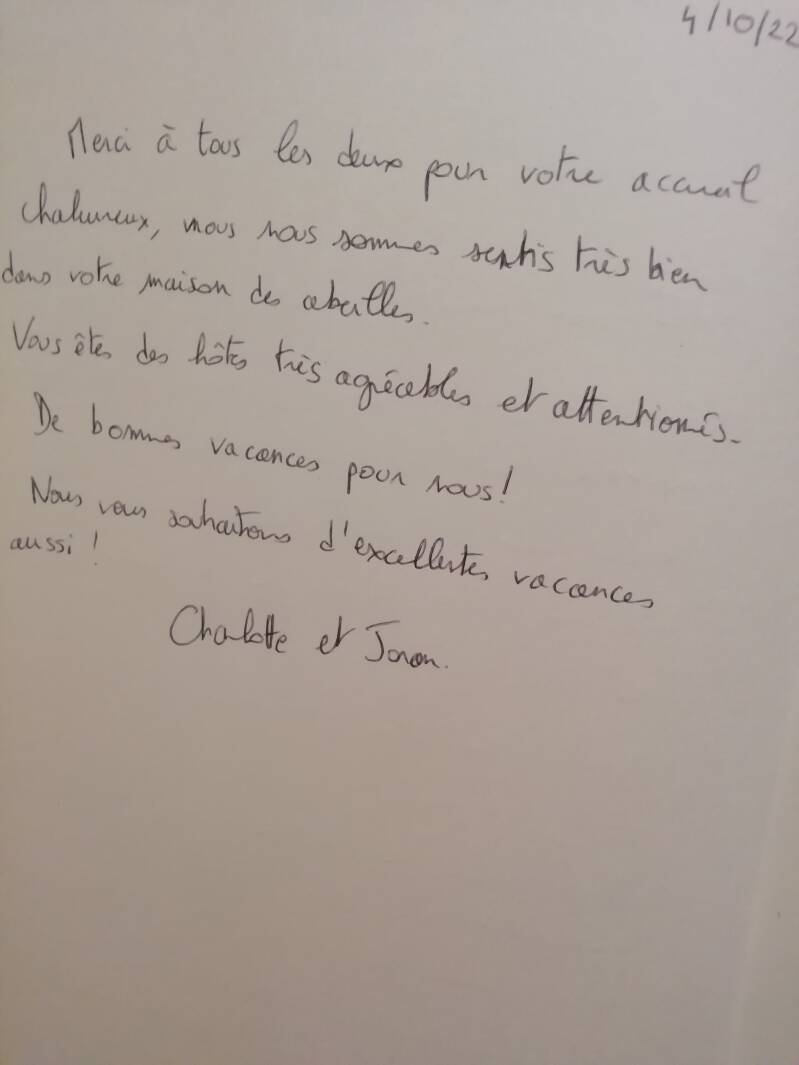 4/10/22
Merci à tous les deux pour votre accueil
chaleureux, nous nous sommes sentis très bien
dans votre maison des abeilles.
Vous êtes des hôtes très agréables et attentionnés.
De bonnes vacances pour nous!
Nous vous souhaitons d'excellentes vacances
aussi !
Charlotte et